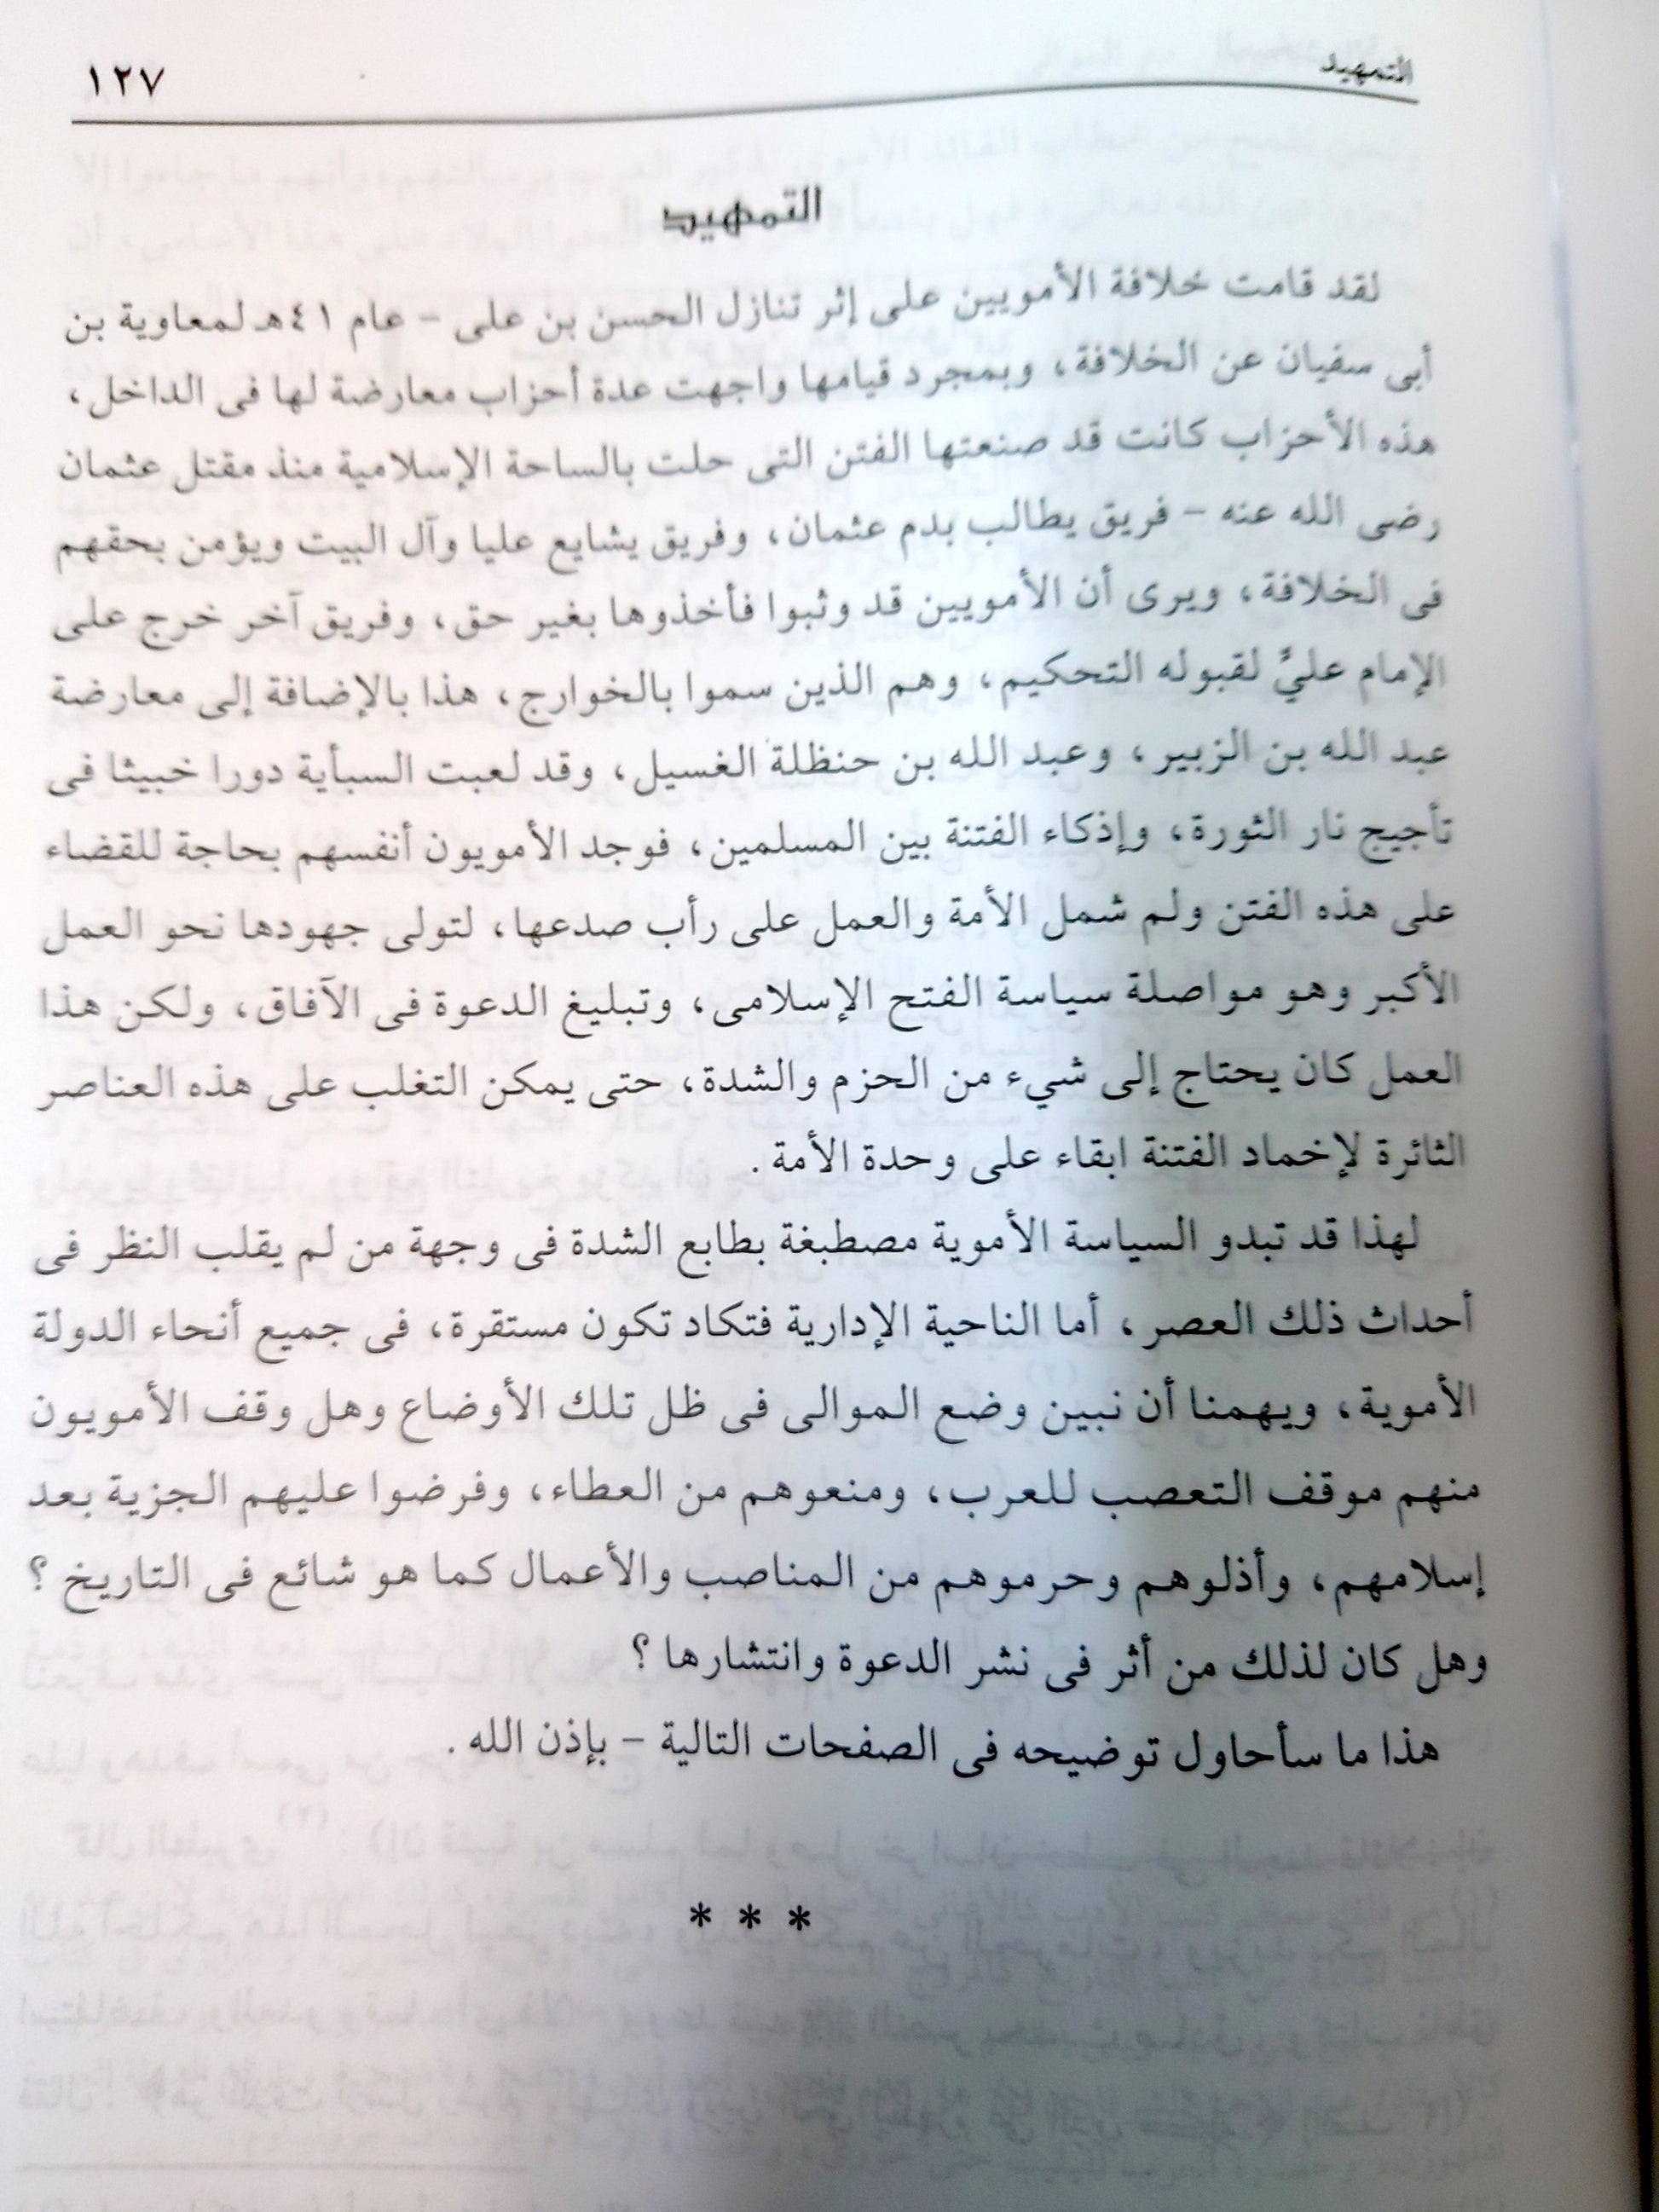 التمهيد
١٢٧
التمهيد
لقد قامت خلافة الأمويين على إثر تنازل الحسن بن على – عام ٤١هـ لمعاوية بن
أبى سفيان عن الخلافة، وبمجرد قيامها واجهت عدة أحزاب معارضة لها فى الداخل،
هذه الأحزاب كانت قد صنعتها الفتن التى حلت بالساحة الإسلامية منذ مقتل عثمان
رضى الله عنه – فريق يطالب بدم عثمان، وفريق يشايع عليا وآل البيت ويؤمن بحقهم
فى الخلافة، ويرى أن الأمويين قد وثبوا فأخذوها بغير حق، وفريق آخر خرج على
الإمام عليٍّ لقبوله التحكيم، وهم الذين سموا بالخوارج، هذا بالإضافة إلى معارضة
عبد الله بن الزبير، وعبد الله بن حنظلة الغسيل، وقد لعبت السبأية دورا خبيثا فى
تأجيج نار الثورة، وإذكاء الفتنة بين المسلمين، فوجد الأمويون أنفسهم بحاجة للقضاء
على هذه الفتن ولم شمل الأمة والعمل على رأب صدعها، لتولى جهودها نحو العمل
الأكبر وهو مواصلة سياسة الفتح الإسلامى، وتبليغ الدعوة فى الآفاق، ولكن هذا
العمل كان يحتاج إلى شيء من الحزم والشدة، حتى يمكن التغلب على هذه العناصر
الثائرة لإخماد الفتنة ابقاء على وحدة الأمة.
لهذا قد تبدو السياسة الأموية مصطبغة بطابع الشدة فى وجهة من لم يقلب النظر فى
أحداث ذلك العصر، أما الناحية الإدارية فتكاد تكون مستقرة، فى جميع أنحاء الدولة
الأموية، ويهمنا أن نبين وضع الموالى فى ظل تلك الأوضاع وهل وقف الأمويون
منهم موقف التعصب للعرب، ومنعوهم من العطاء، وفرضوا عليهم الجزية بعد
إسلامهم، وأذلوهم وحرموهم من المناصب والأعمال كما هو شائع فى التاريخ ؟
وهل كان لذلك من أثر فى نشر الدعوة وانتشارها ؟
هذا ما سأحاول توضيحه فى الصفحات التالية – بإذن الله.
* * *